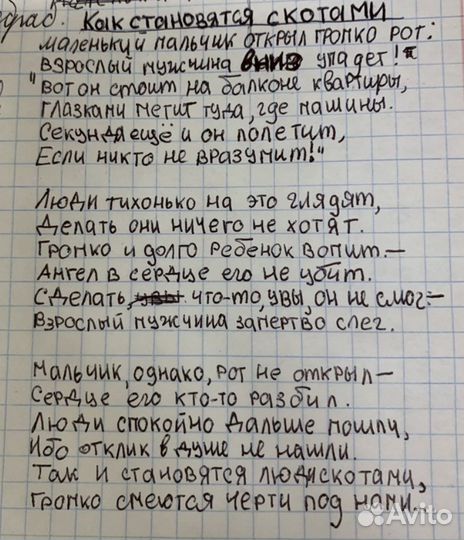 Как становятся скотами
маленький мальчик открыл громко рот:
Взрослый мужчина вниз упадет!
"Вот он стоит на балконе квартиры,
Глазками метит туда, где машины.
Секунда ещё и он полетит,
Если никто не вразумит!"
Люди тихонько на это глядят,
Делать они ничего не хотят.
Громко и долго ребенок вопит.—
Ангел в сердце его не убит.
Сделать, увы что-то, увы, он не смог—
Взрослый мужчина замертво слег.
Мальчик, однако, рот не открыл—
Сердце его кто-то разбил.
Люди спокойно дальше пошли,
Ибо отклик в душе не нашли.
Так и становятся люди скотами,
Громко смеются черти под нами...
Avito